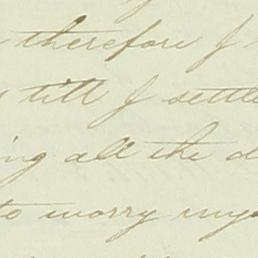 therefore I
till I settle
ing all the d
to worry mys